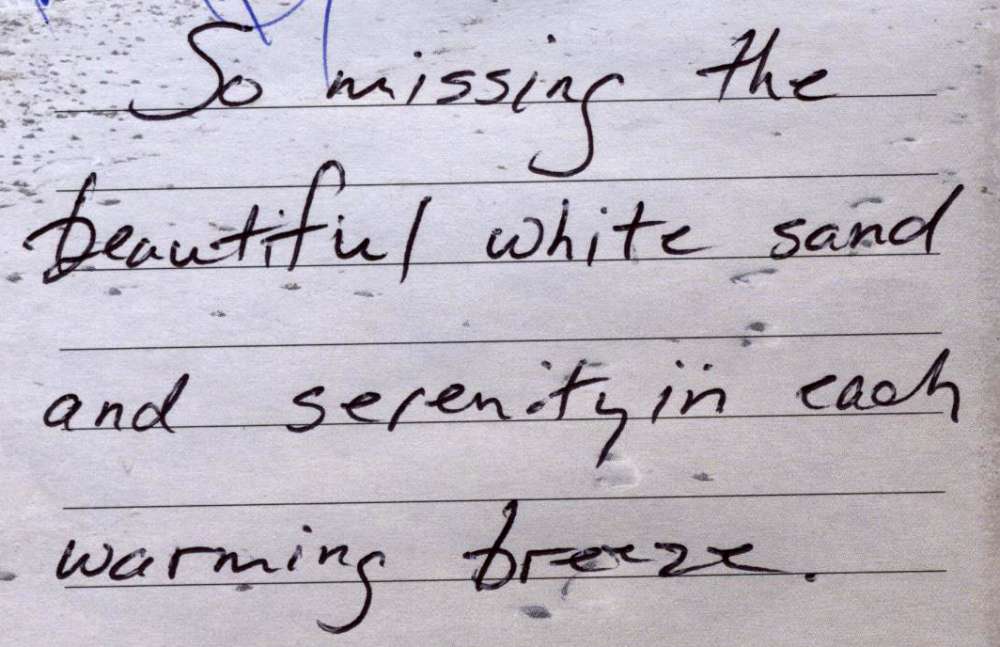 So missing the
beautiful white sand
and serenity in each
warming breeze.